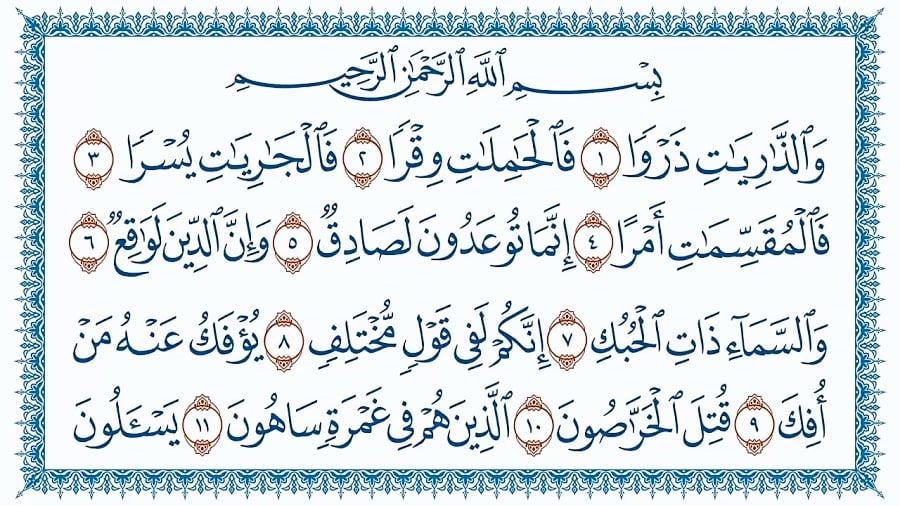 بِسْمِ ٱللَّهِ ٱلرَّحْمَٰنِ ٱلرَّحِيمِ
وَٱلذَّٰرِيَٰتِ ذَرْوًا ١ فَٱلْحَٰمِلَٰتِ وِقْرًا ٢ فَٱلْجَٰرِيَٰتِ يُسْرًا ٣
فَٱلْمُقَسِّمَٰتِ أَمْرًا ٤ إِنَّمَا تُوعَدُونَ لَصَادِقٌ ٥ وَإِنَّ ٱلدِّينَ لَوَٰقِعٌ ٦
وَٱلسَّمَآءِ ذَاتِ ٱلْحُبُكِ ٧ إِنَّكُمْ لَفِى قَوْلٍ مُّخْتَلِفٍ ٨ يُؤْفَكُ عَنْهُ مَنْ
أُفِكَ ٩ قُتِلَ ٱلْخَرَّٰصُونَ ١٠ ٱلَّذِينَ هُمْ فِى غَمْرَةٍ سَاهُونَ ١١ يَسْـَٔلُونَ